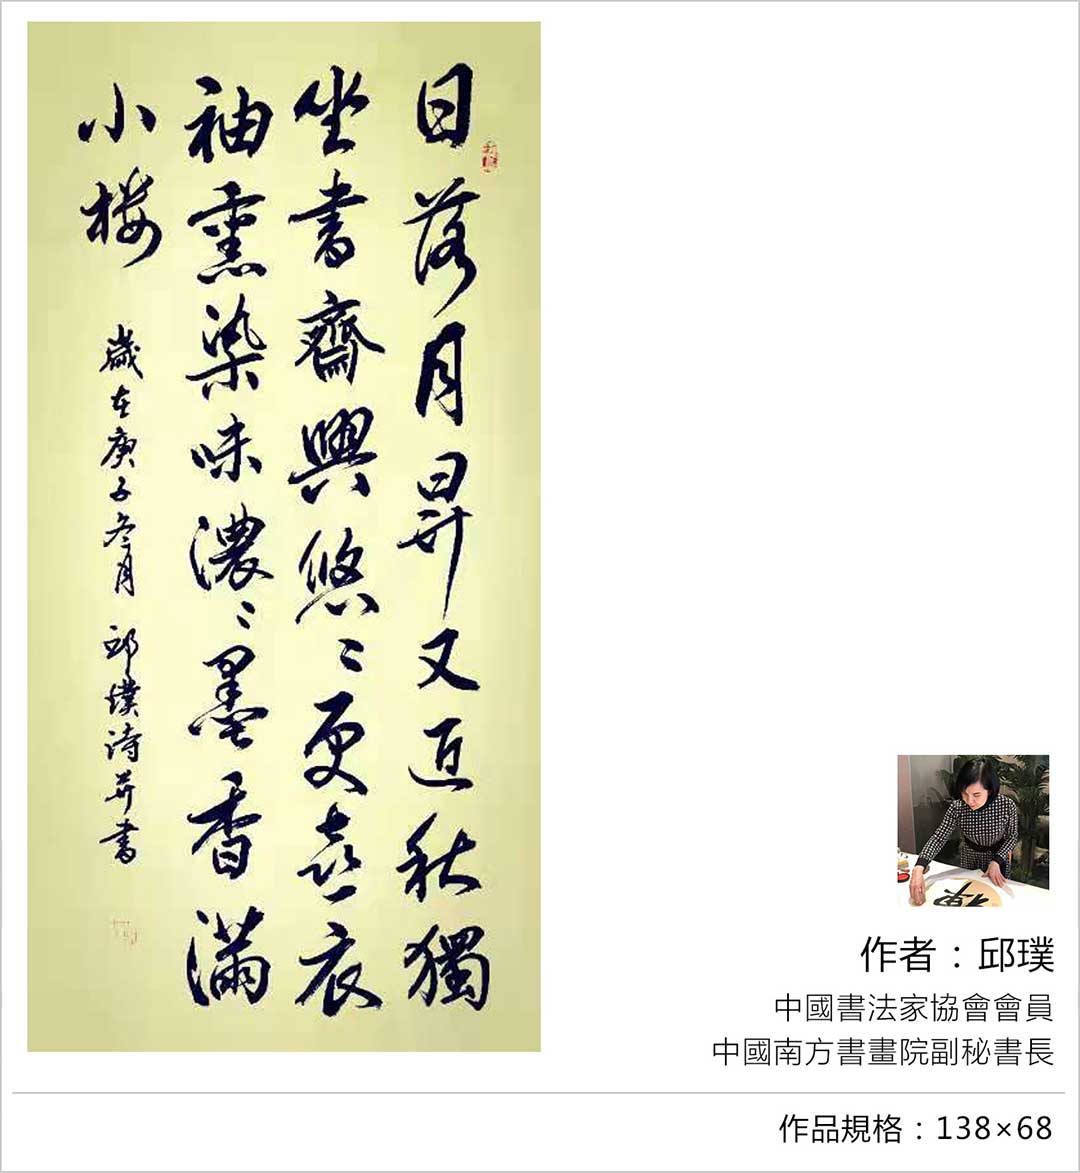 日落月昇又近秋獨
坐書齋興悠〻更喜衣
袖熏染味濃〻墨香滿
小楼
歲在庚子冬月 邱璞詩并書
作者：邱璞
中國書法家協會會員
中國南方書畫院副秘書長
作品規格：138×68